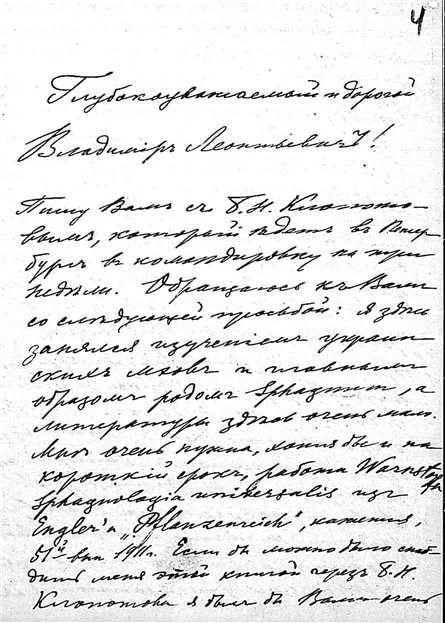 4
Глубокоуважаемый и дорогой
Владимиръ Леонтьевичъ!
Пишу Вамъ съ Б. Н. Клопото-
вымъ, который ѣдетъ въ Петер-
бургъ въ командировку на три
недѣли. Обращаюсь къ Вамъ
со слѣдующей просьбой: я здѣсь
занялся изученіемъ украин-
скихъ мховъ и главнымъ
образомъ родомъ Sphagnum, а
литературы здѣсь очень мало.
Мнѣ очень нужна, хотя бы и на
короткій срокъ, работа Warnstorfa
Sphagnologia universalis изъ
Engler'a „Pflanzenreich“, кажется,
51й вып 1911г. Если бы можно было снаб-
дить меня этой книгой черезъ Б. Н.
Клопотова я былъ бы Вамъ очень